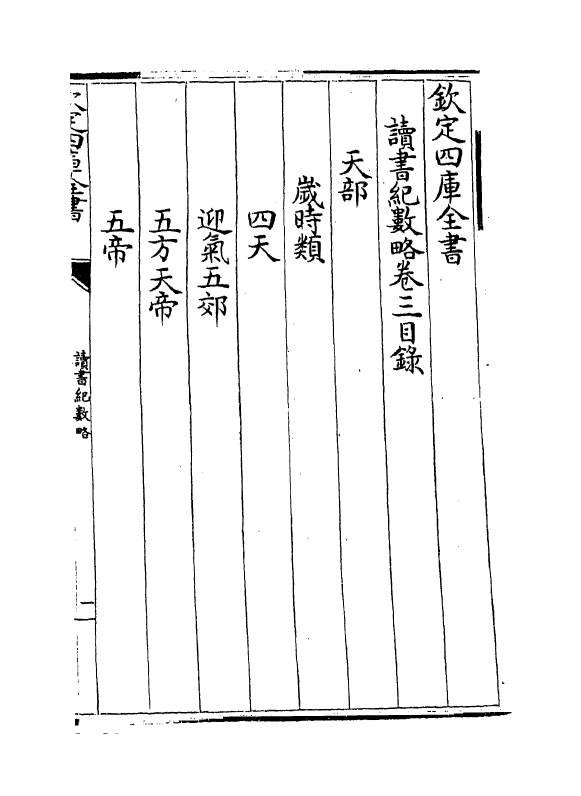 欽定四庫全書
讀書紀數略卷三目錄
天部
歲時類
四天
迎氣五郊
五方天帝
五帝
欽定四庫全書
讀書紀數略
一